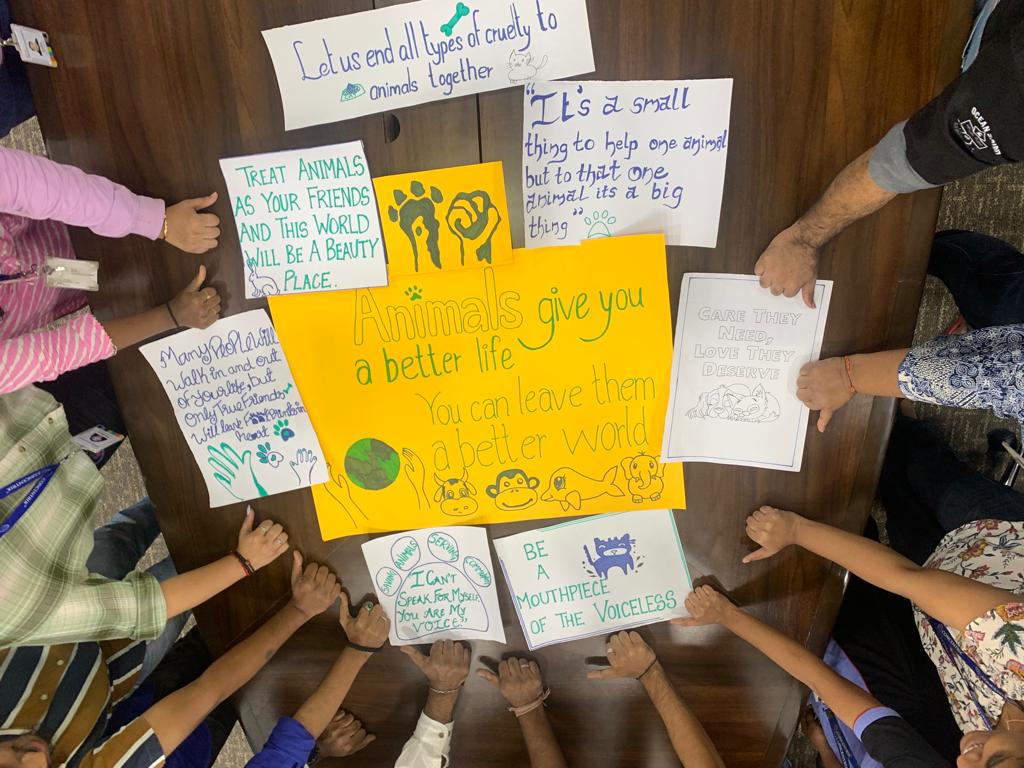 Let us end all types of cruelty to
animals together
"It's a small
thing to help one animal
but to that one
animal its a big
thing"
TREAT ANIMALS
AS YOUR FRIENDS
AND THIS WORLD
WILL BE A BEAUTY
PLACE.
Animals give you
a better life
You can leave them
a better world
CARE THEY
NEED,
LOVE THEY
DESERVE
Many People Will
Walk in and out
of your life, but
Only True Friends
Will leave
SAVING ANIMALS SERVING
I CAN'T
SPEAK FOR MYSELF,
YOU ARE MY
VOICE"
BE
A
MOUTHPIECE
OF THE VOICELESS
OCEAN
CONCENTRIX